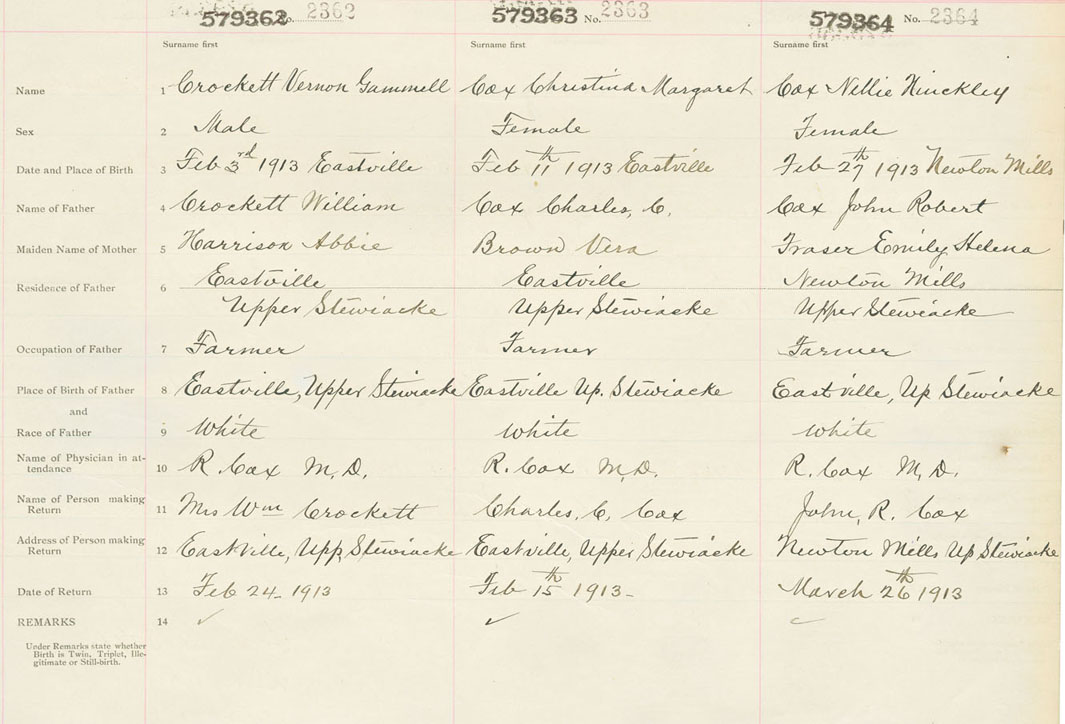 579362 No. 2362 579363 No. 2363 579364 No. 2364
Surname first Surname first Surname first
Name 1 Crockett Vernon Gammell Cox Christina Margaret Cox Nellie Hinckley
Sex 2 Male Female Female
Date and Place of Birth 3 Feb 3rd 1913 Eastville Feb 11th 1913 Eastville Feb 27th 1913 Newton Mills
Name of Father 4 Crockett William Cox Charles, C. Cox John Robert
Maiden Name of Mother 5 Harrison Abbie Brown Vera Fraser Emily Helena
Residence of Father 6 Eastville Eastville Newton Mills
Upper Stewiacke Upper Stewiacke Upper Stewiacke
Occupation of Father 7 Farmer Farmer Farmer
Place of Birth of Father 8 Eastville, Upper Stewiacke Eastville Up. Stewiacke Eastville, Up Stewiacke
and
Race of Father 9 White white white
Name of Physician in at-
tendance 10 R. Cox M.D. R. Cox M.D. R. Cox M.D.
Name of Person making
Return 11 Mrs Wm Crockett Charles, C. Cox John, R. Cox
Address of Person making
Return 12 Eastville, Upp, Stewiacke Eastville, Upper Stewiacke Newton Mills Up Stewiacke
Date of Return 13 Feb 24- 1913 Feb 15th 1913- March 26th 1913
REMARKS 14 ✓ ✓ ✓
Under Remarks state whether
Birth is Twin, Triplet, Ille-
gitimate or Still-birth.